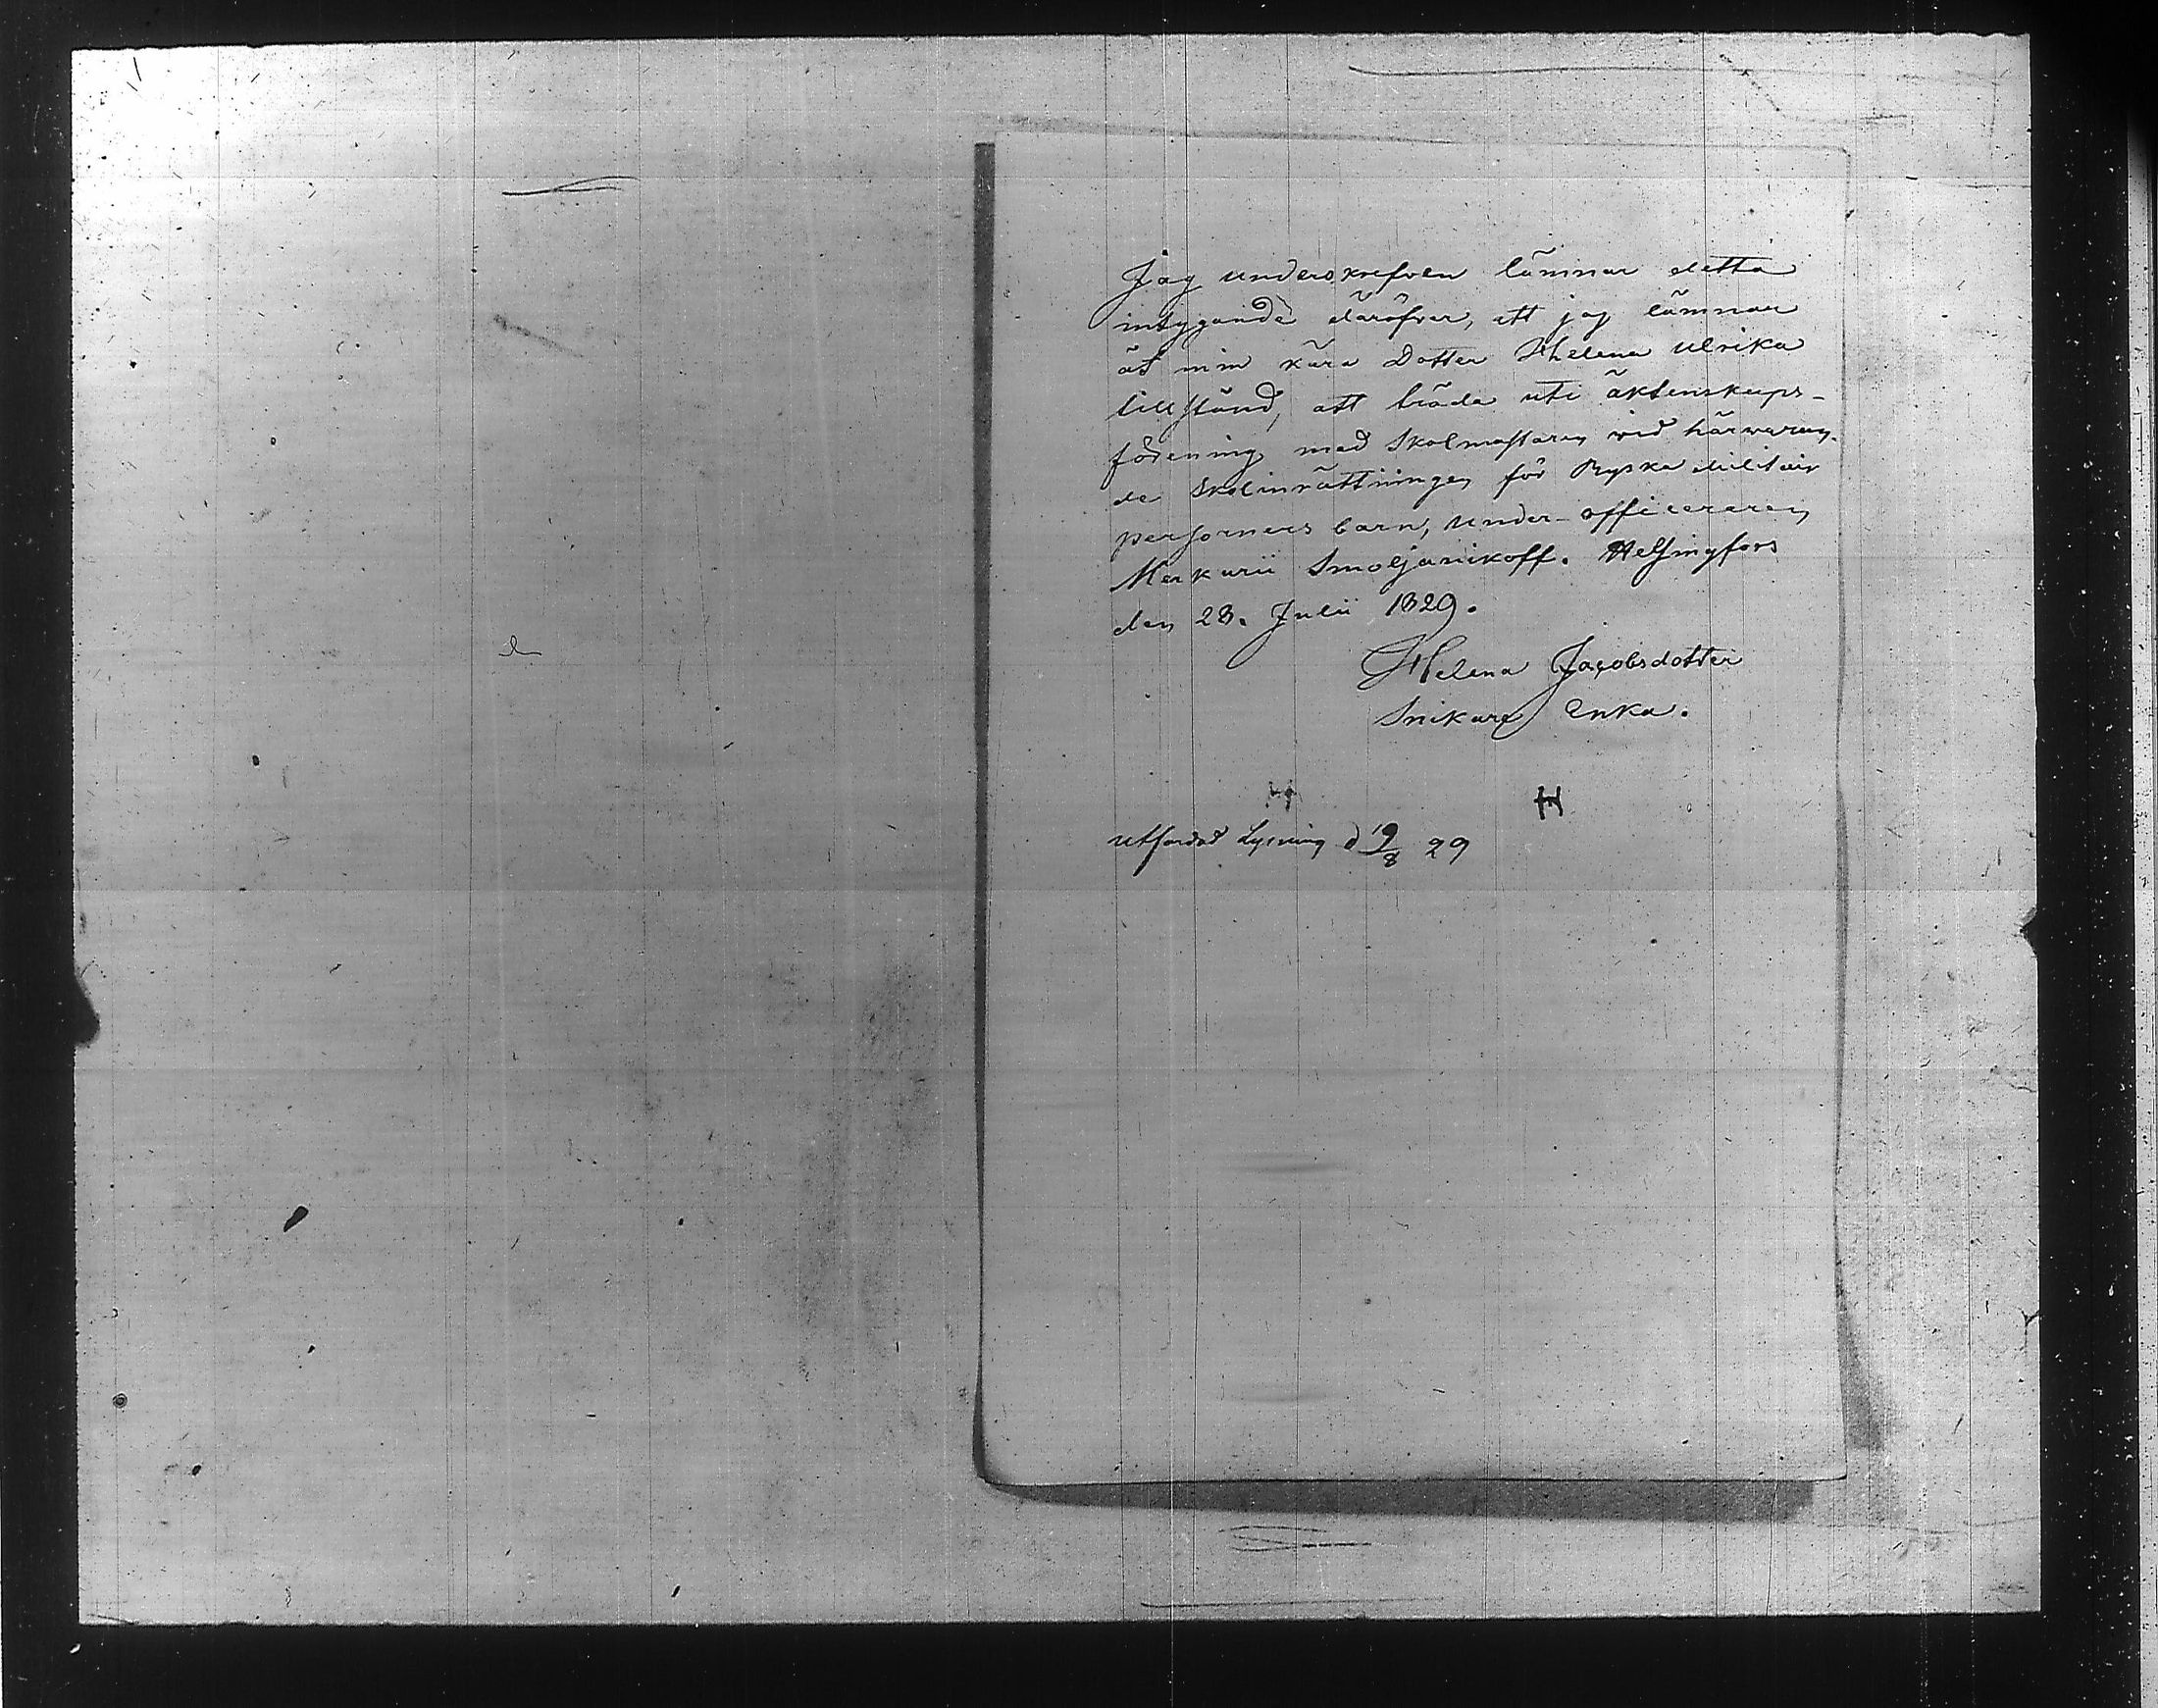 Jag underskrefven lämnar detta
intygande däröfver, att jag lämnar
åt min kära Dotter Helena Ulrika
tillstånd, att träda uti äktenskaps-
förening med Skolmästaren vid härvaran-
de Skolinrättningen för Ryska Militair
personers barn, Under-officeraren
Merkurii Smoljanikoff. Helsingfors
den 23. Julii 1829.
Helena Jacobsdotter
Snikare Enka.
H
Utfärdad Lysning d 19/8 29